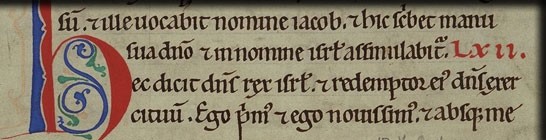 sū. ⁊ ille uocabit nomine iacob. ⁊ hic scbet manu
sua dn̄o ⁊ in nomine isrł assimulabit᷑. LXII.
Hec dicit dn̄s rex isrł. ⁊ redemptor eiꝰ dn̄s exer
cituū. Ego p̄mꝰ ⁊ ego nouissimꝰ. ⁊ absq; me